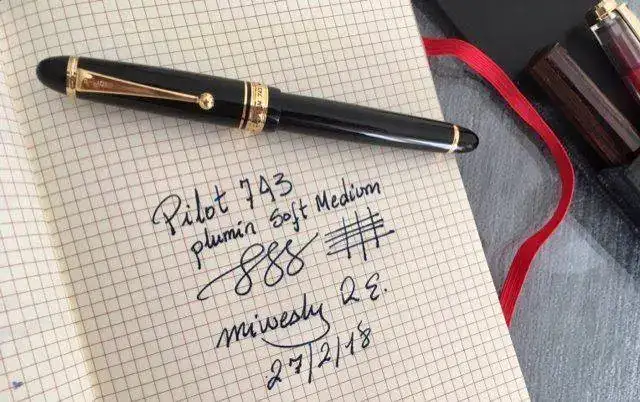 Pilot 743
plumin Soft Medium
miwesly Q E.
27/2/18